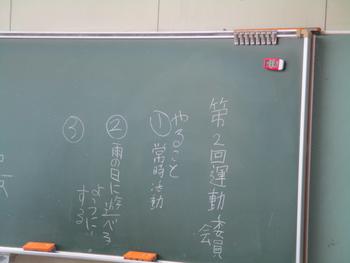 第2回運動委員会
やること
①常時活動
②雨の日に遊べる
ようにする
③